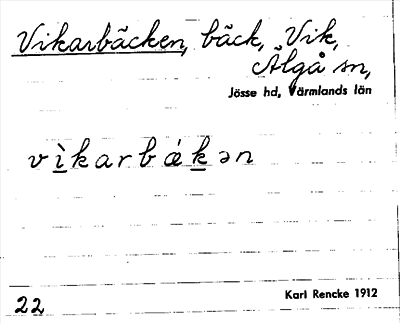 Vikarbäcken, bäck, Vik,
Älgå sn,
Jösse hd, Värmlands län
vı̱̀karbǽḵən
22
Karl Rencke 1912